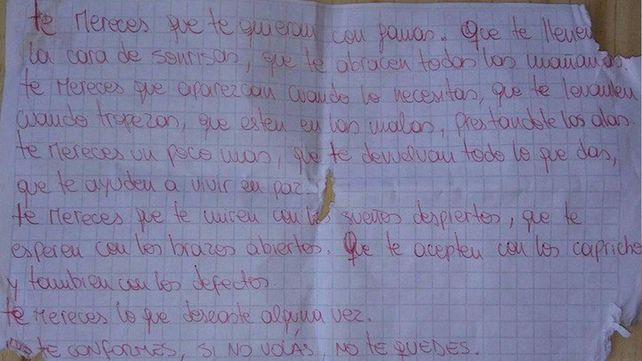 te mereces que te quieran con ganas. Que te llenen
la cara de sonrisas, que te abracen todas las mañanas
te mereces que aparezcan cuando lo necesitas, que te levanten
cuando tropezas, que esten en las malas, prestandote las alas
te mereces un poco mas, que te devuelvan todo lo que das,
que te ayuden a vivir en paz.
te mereces que te miren con los sueños despiertos, que te
esperen con los brazos abiertos. Que te acepten con los caprichos
y tambien con los defectos.
te mereces lo que deseaste alguna vez.
te conformes, si no volás, no te quedes.